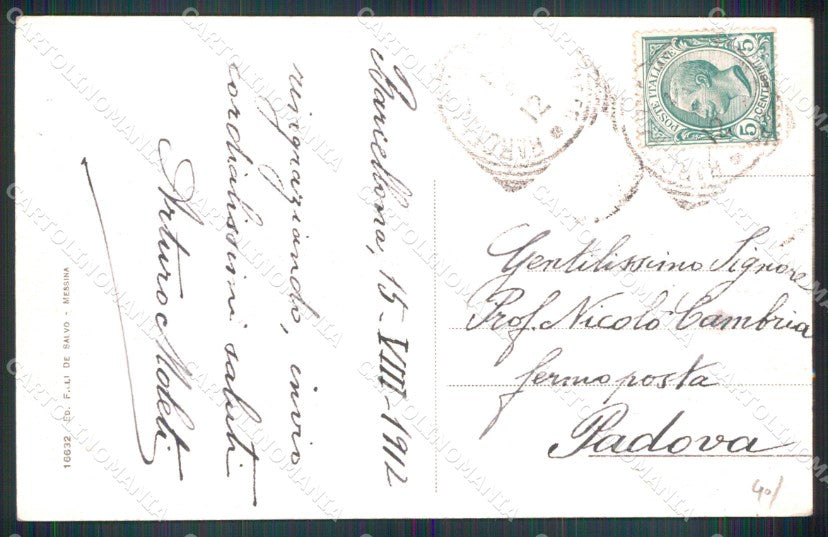 Barcellona, 15-VIII-1912
ringraziando, invio
cordialissimi saluti
Arturo
16632. ED. F.LLI DE SALVO - MESSINA
POSTE ITALIANE
5 CENTESIMI 5
12
Gentilissimo Signore
Prof. Nicolò Cambria
fermo posta
Padova
40/
CARTOLINOMANIA